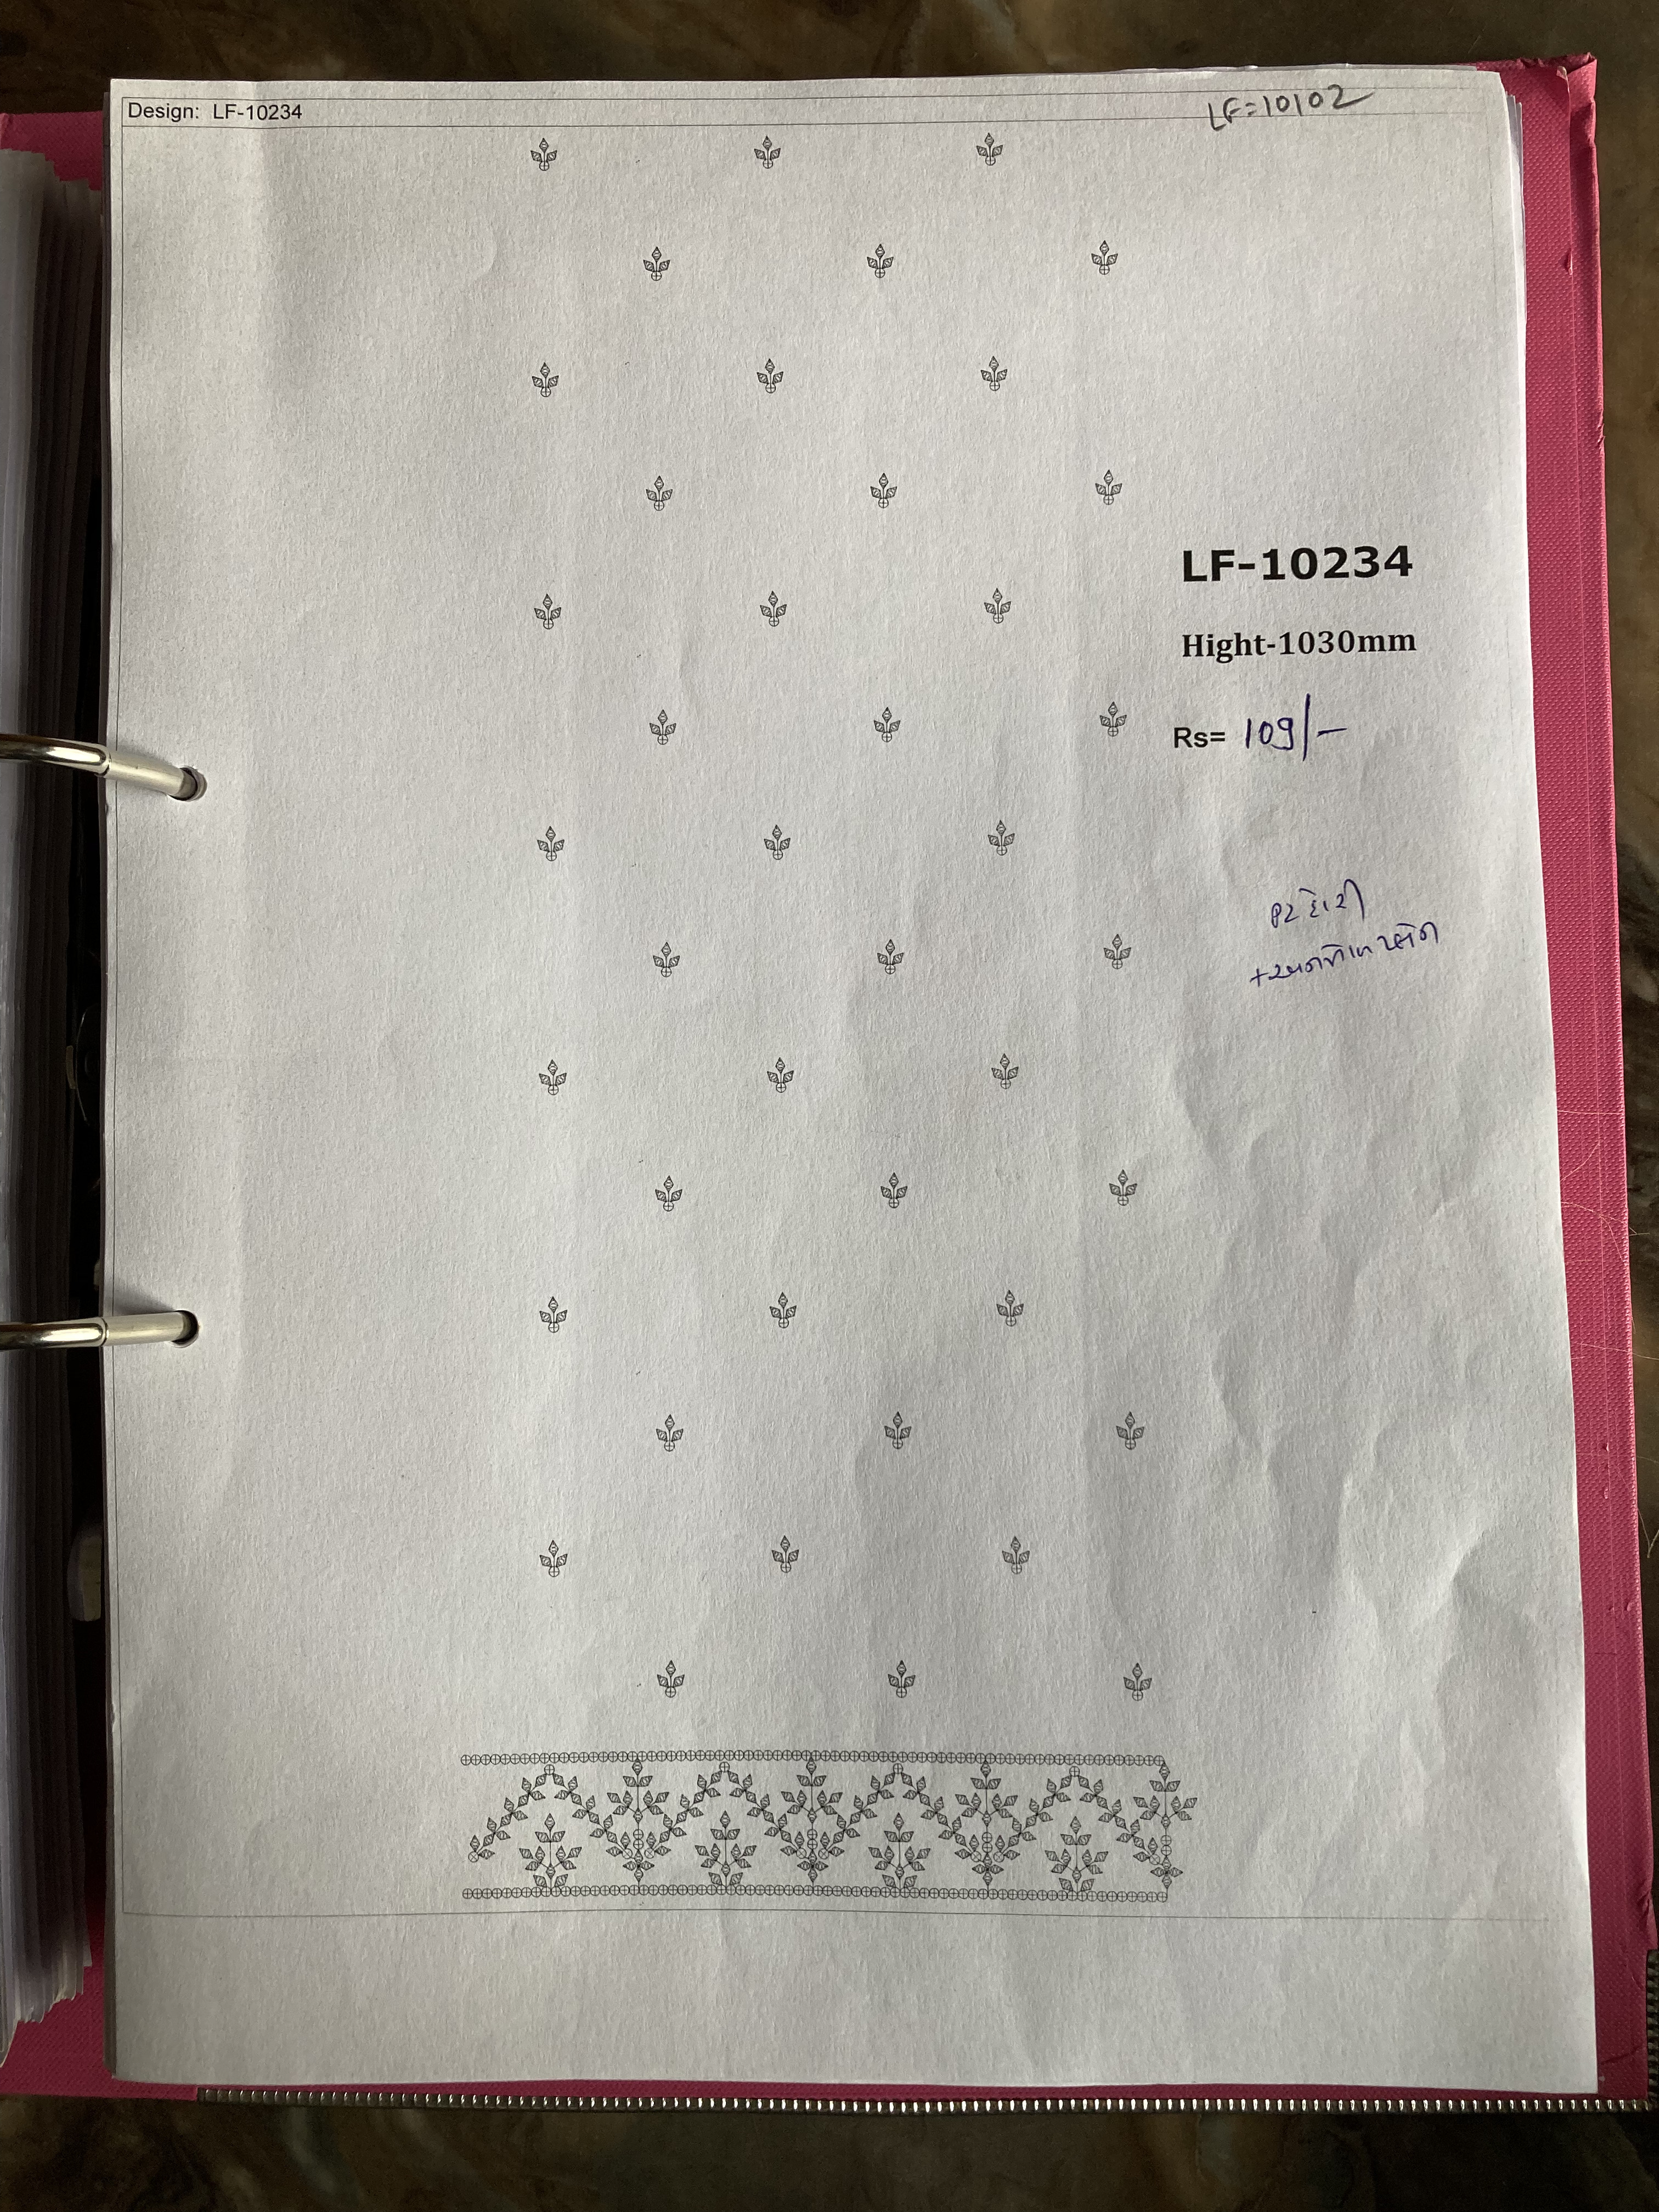 Design: LF-10234
LF=10102
LF-10234
Hight-1030mm
Rs= 109/-